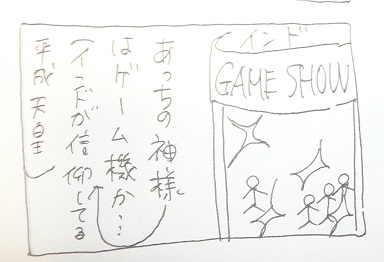 インド
GAME SHOW
あっちの神様
はゲーム機か…
(インドが信仰してる
平成天皇)